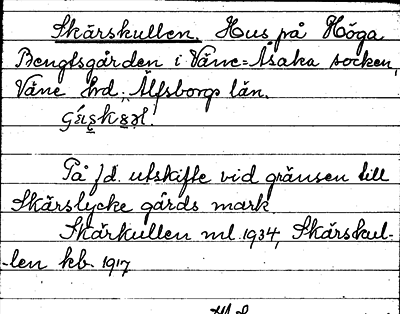 Skärskullen. Hus på Höga
Bengtsgården i Väne-Åsaka socken,
Väne hrd, Älfsborgs län.
På f.d. utskifte vid gränsen till
Skärslycke gårds mark.
Skärkullen ml. 1934, Skärskul-
-len kb. 1917